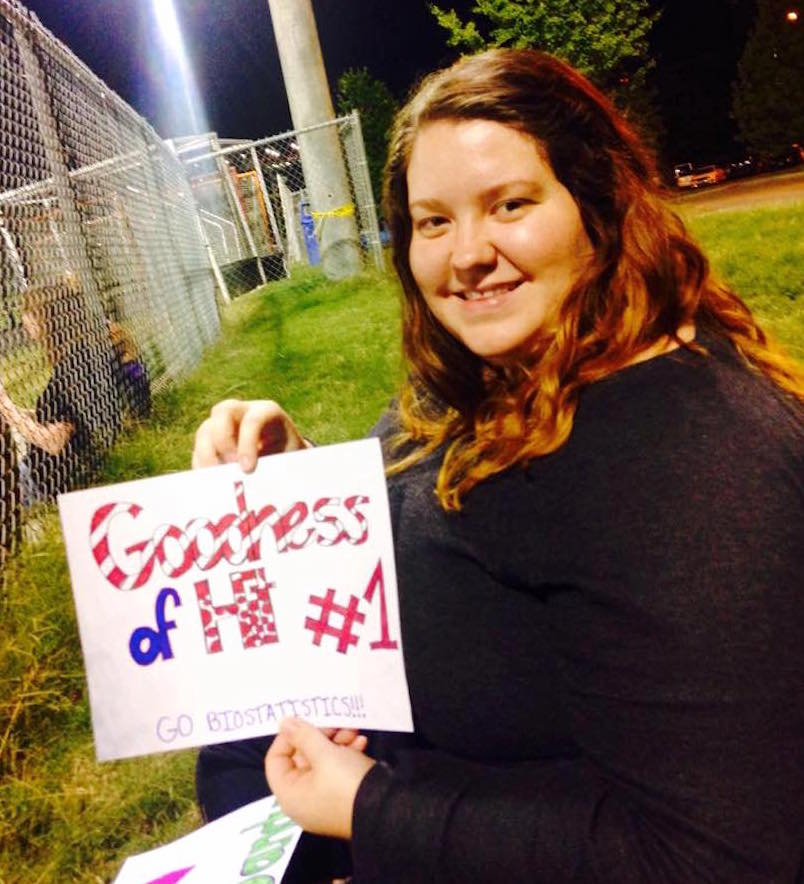 Goodness
of Fit #1
GO BIOSTATISTICS!!!